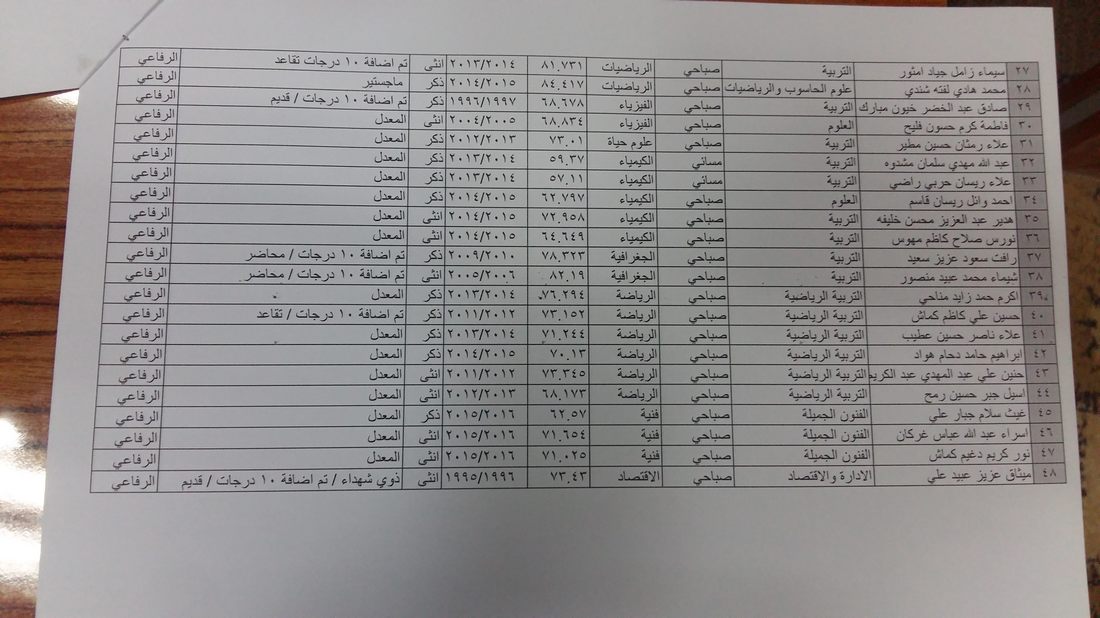 ٢٧ سيماء زامل جياد امثور التربية صباحي الرياضيات ٨١.٧٣١ ٢٠١٣/٢٠١٤ انثى تم اضافة ١٠ درجات تقاعد الرفاعي
٢٨ محمد هادي لفته شندي علوم الحاسوب والرياضيات صباحي الرياضيات ٨٤.٤١٧ ٢٠١٤/٢٠١٥ ذكر ماجستير الرفاعي
٢٩ صادق عبد الخضر خيون مبارك التربية صباحي الفيزياء ٦٨.٦٧٨ ١٩٩٦/١٩٩٧ ذكر تم اضافة ١٠ درجات / قديم الرفاعي
٣٠ فاطمة كرم حسون فليح العلوم صباحي الفيزياء ٦٨.٨٣٤ ٢٠٠٤/٢٠٠٥ انثى المعدل الرفاعي
٣١ علاء رمثان حسين مطير التربية صباحي علوم حياة ٧٣.٠١ ٢٠١٢/٢٠١٣ ذكر المعدل الرفاعي
٣٢ عبد الله مهدي سلمان مشدوه التربية مسائي الكيمياء ٥٩.٣٧ ٢٠١٣/٢٠١٤ ذكر المعدل الرفاعي
٣٣ علاء ريسان حربي راضي التربية مسائي الكيمياء ٥٧.١١ ٢٠١٣/٢٠١٤ ذكر المعدل الرفاعي
٣٤ احمد وائل ريسان قاسم العلوم صباحي الكيمياء ٦٢.٧٩٧ ٢٠١٤/٢٠١٥ ذكر المعدل الرفاعي
٣٥ هدير عبد العزيز محسن خليفه التربية صباحي الكيمياء ٧٢.٩٥٨ ٢٠١٤/٢٠١٥ انثى المعدل الرفاعي
٣٦ نورس صلاح كاظم مهوس التربية صباحي الكيمياء ٦٤.٦٤٩ ٢٠١٤/٢٠١٥ انثى المعدل الرفاعي
٣٧ رافت سعود عزيز سعيد التربية صباحي الجغرافية ٧٨.٣٢٣ ٢٠٠٩/٢٠١٠ ذكر تم اضافة ١٠ درجات / محاضر الرفاعي
٣٨ شيماء محمد عبيد منصور التربية صباحي الجغرافية ٨٢.١٩ ٢٠٠٥/٢٠٠٦ انثى تم اضافة ١٠ درجات / محاضر الرفاعي
٣٩ اكرم حمد زايد مناحي التربية الرياضية صباحي الرياضة ٧٦.٢٩٤ ٢٠١٣/٢٠١٤ ذكر المعدل الرفاعي
٤٠ حسين علي كاظم كماش التربية الرياضية صباحي الرياضة ٧٣.١٥٢ ٢٠١١/٢٠١٢ ذكر تم اضافة ١٠ درجات / تقاعد الرفاعي
٤١ علاء ناصر حسين عطيب التربية الرياضية صباحي الرياضة ٧١.٢٤٤ ٢٠١٣/٢٠١٤ ذكر المعدل الرفاعي
٤٢ ابراهيم حامد دحام هواد التربية الرياضية صباحي الرياضة ٧٠.١٣ ٢٠١٤/٢٠١٥ ذكر المعدل الرفاعي
٤٣ حنين علي عبد المهدي عبد الكريم التربية الرياضية صباحي الرياضة ٧٣.٣٤٥ ٢٠١١/٢٠١٢ انثى المعدل الرفاعي
٤٤ اسيل جبر حسين رمح التربية الرياضية صباحي الرياضة ٦٨.١٧٣ ٢٠١٢/٢٠١٣ انثى المعدل الرفاعي
٤٥ غيث سلام جبار علي الفنون الجميلة صباحي فنية ٦٢.٥٧ ٢٠١٥/٢٠١٦ ذكر المعدل الرفاعي
٤٦ اسراء عبد الله عباس غركان الفنون الجميلة صباحي فنية ٧١.٦٥٤ ٢٠١٥/٢٠١٦ انثى المعدل الرفاعي
٤٧ نور كريم دغيم كماش الفنون الجميلة صباحي فنية ٧١.٠٢٥ ٢٠١٥/٢٠١٦ انثى المعدل الرفاعي
٤٨ ميثاق عزيز عبيد علي الادارة والاقتصاد صباحي الاقتصاد ٧٣.٤٣ ١٩٩٥/١٩٩٦ انثى ذوي شهداء / تم اضافة ١٠ درجات / قديم الرفاعي